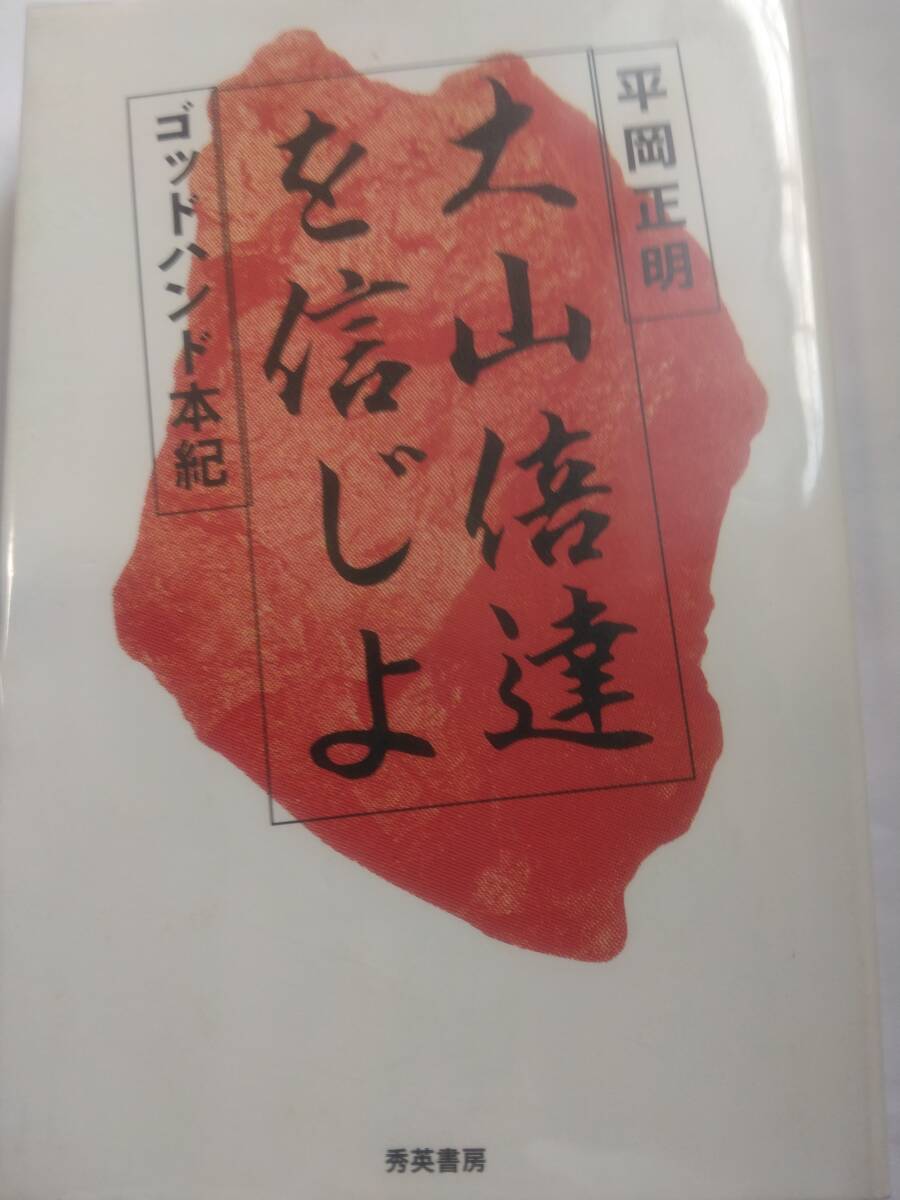 平岡正明
大山倍達
を信じよ
ゴッドハンド本紀
秀英書房